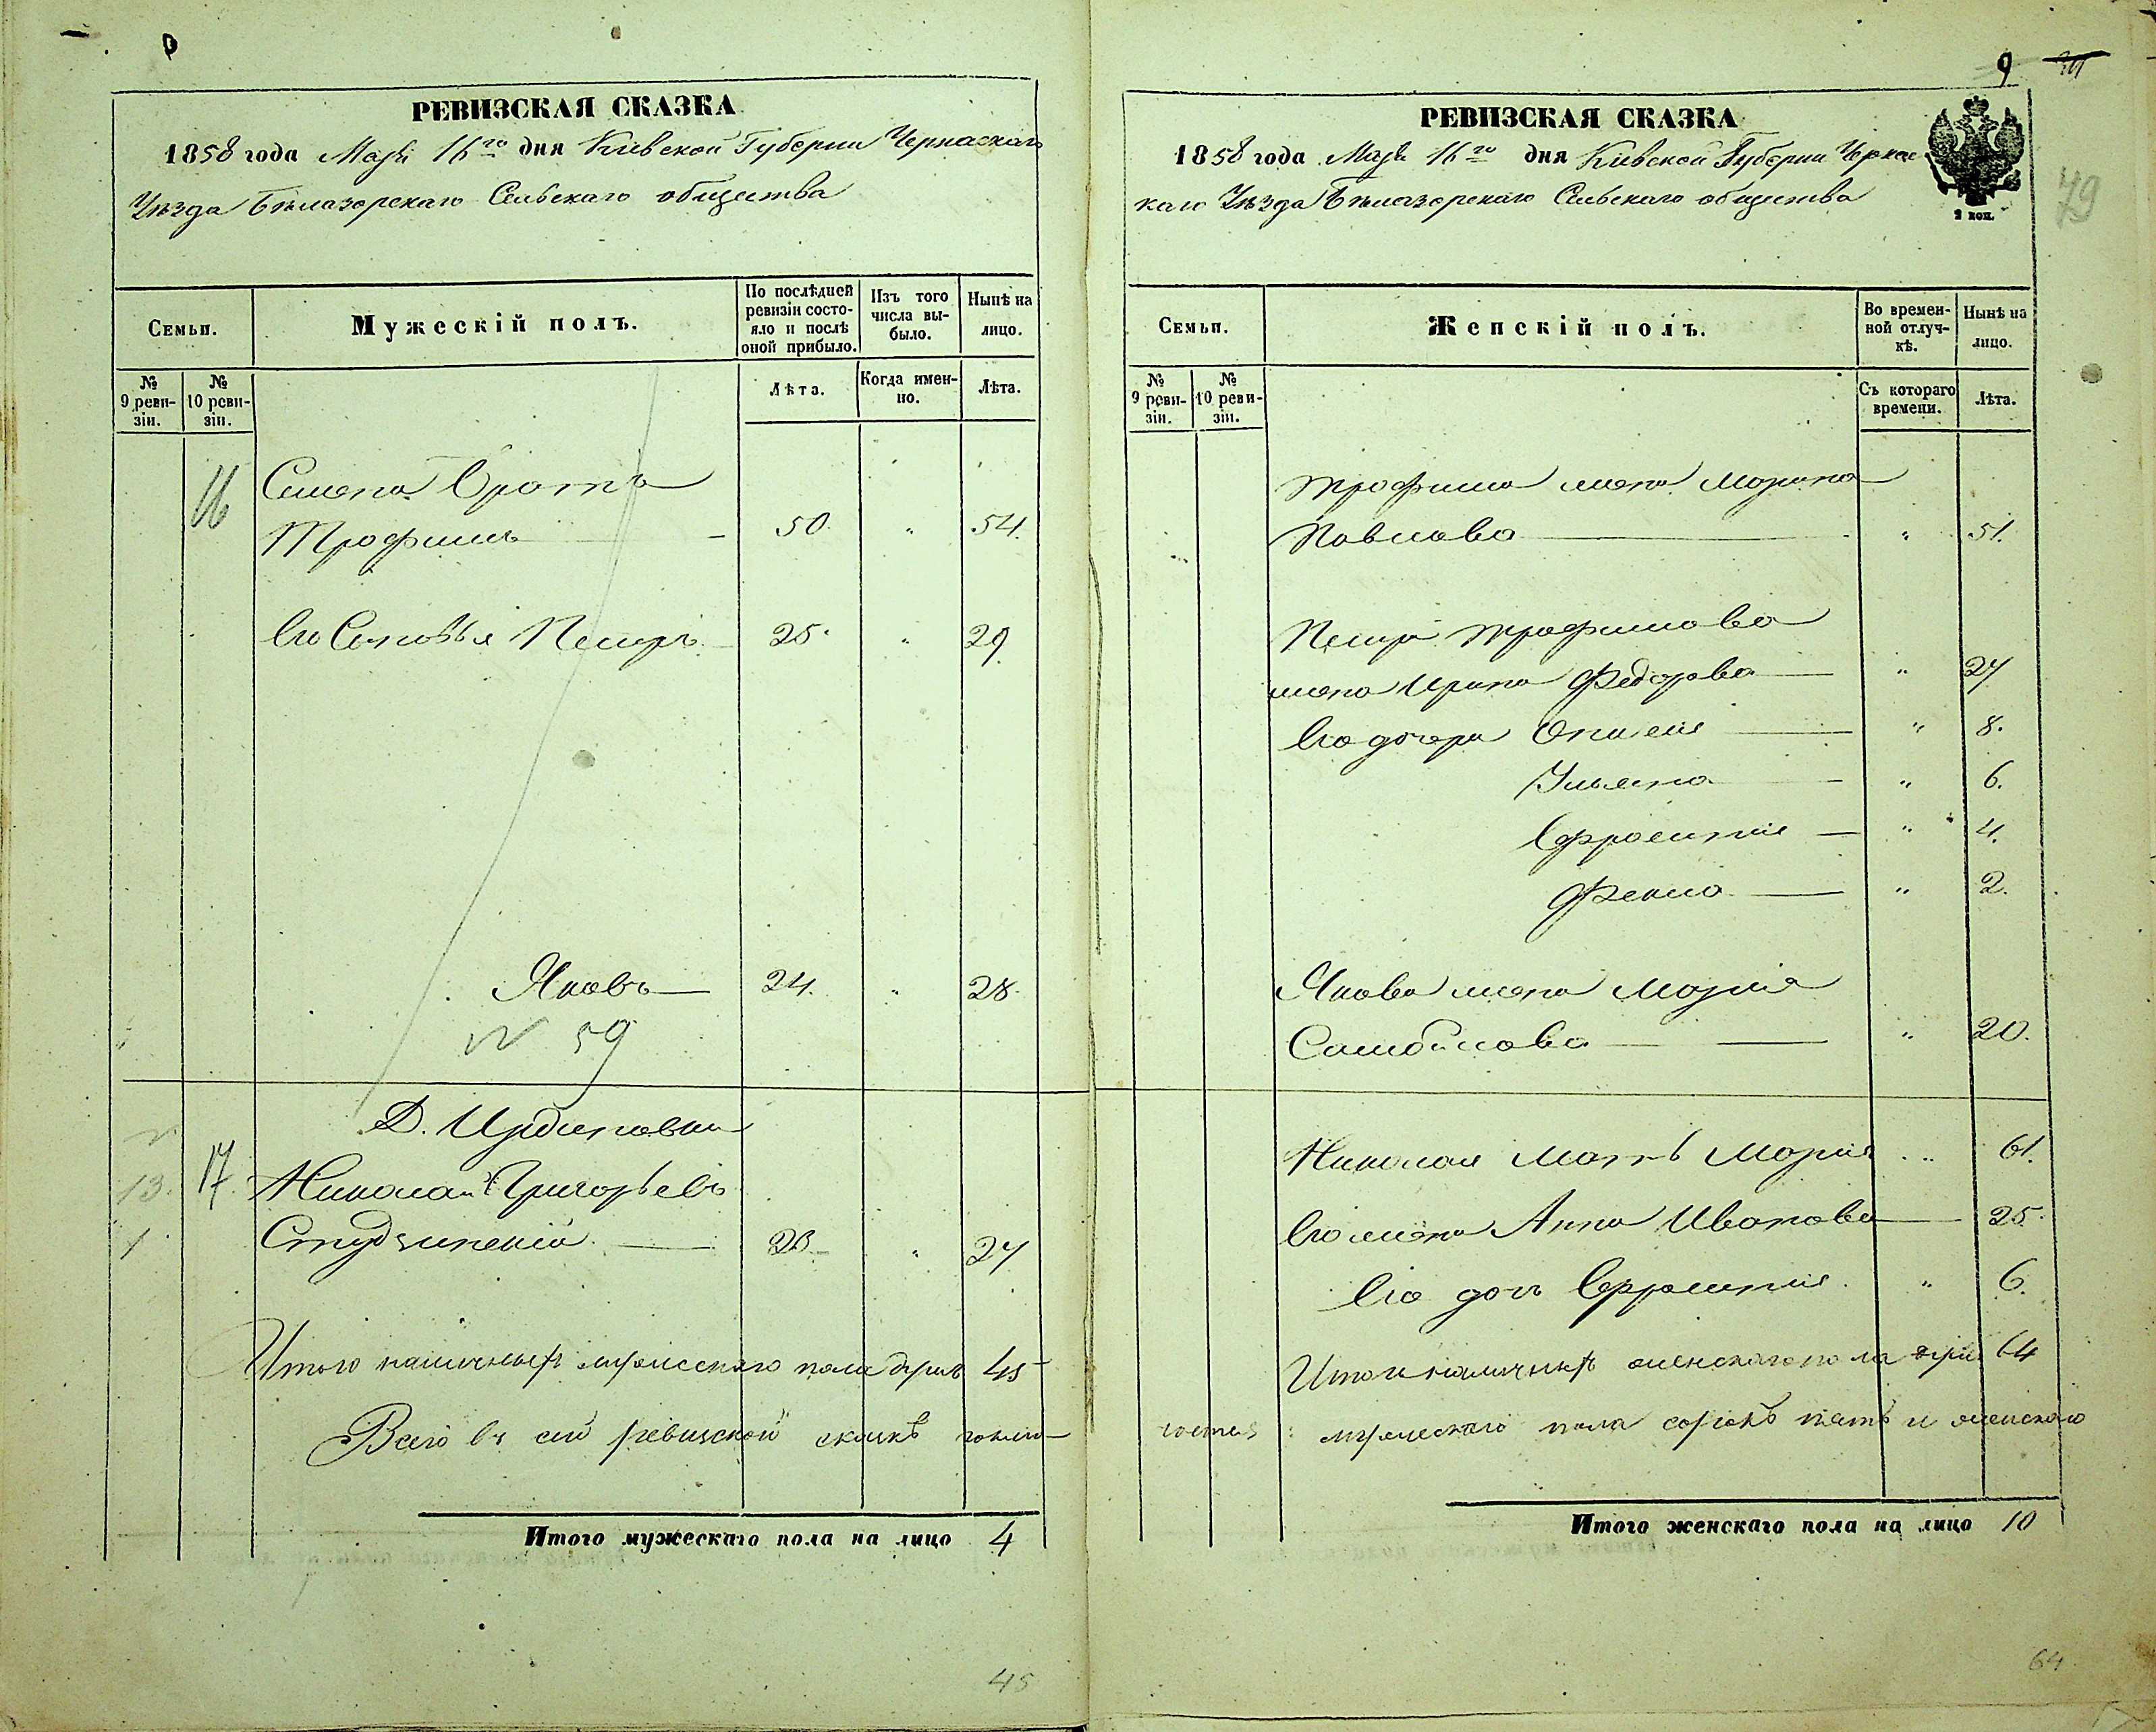 9 30
РЕВИЗСКАЯ СКАЗКА
1858 года Мая 16го дня Киевской Губерніи Черкаскаго
Уѣзда Бѣлазерскаго Сельскаго общества
Семьи.
Мужескій полъ.
По послѣдней ревизіи состояло и послѣ оной прибыло.
Изъ того числа выбыло.
Нынѣ на лицо.
№ 9 ревизіи.
№ 10 ревизіи.
Лѣта.
Когда именно.
Лѣта.
16 Семена Брата
Трофимъ 50. " 54.
Его Сыновья Петръ 25. " 29
Яковъ 24. " 28.
N 59
Д. Ирдыновки
13. 17. Николай Григорьевъ
1 Студзинскій 23 " 27
Итого наличныхъ мужескаго пола душъ 45
Всего въ сей ревизской сказкѣ
Итого мужескаго пола на лицо 4
45
РЕВИЗСКАЯ СКАЗКА
1858 года Мая 16го дня Киевской Губерніи Черкас
каго Уѣзда Бѣлазерскаго Сельскаго общества
2 коп.
79
Семьи.
Женскій полъ.
Во временной отлучкѣ.
Нынѣ на лицо.
№ 9 ревизіи.
№ 10 ревизіи.
Съ котораго времени.
Лѣта.
Трофима жена Марина
Павлова " 51.
Петра Трофимова
жена Ирина Федорова " 27
Его дочери " 8.
Ульяна " 6.
Ефросинія " 4.
Фекла " 2.
Якова жена Марія
Самойлова " 20.
Николая Мать Марія " 61.
Его жена Анна Иванова 25.
Его дочь Ефросинія " 6.
Итого наличныхъ женскаго пола душъ 64
мужескаго пола сорокъ пять и женскаго
Итого женскаго пола на лицо 10
64